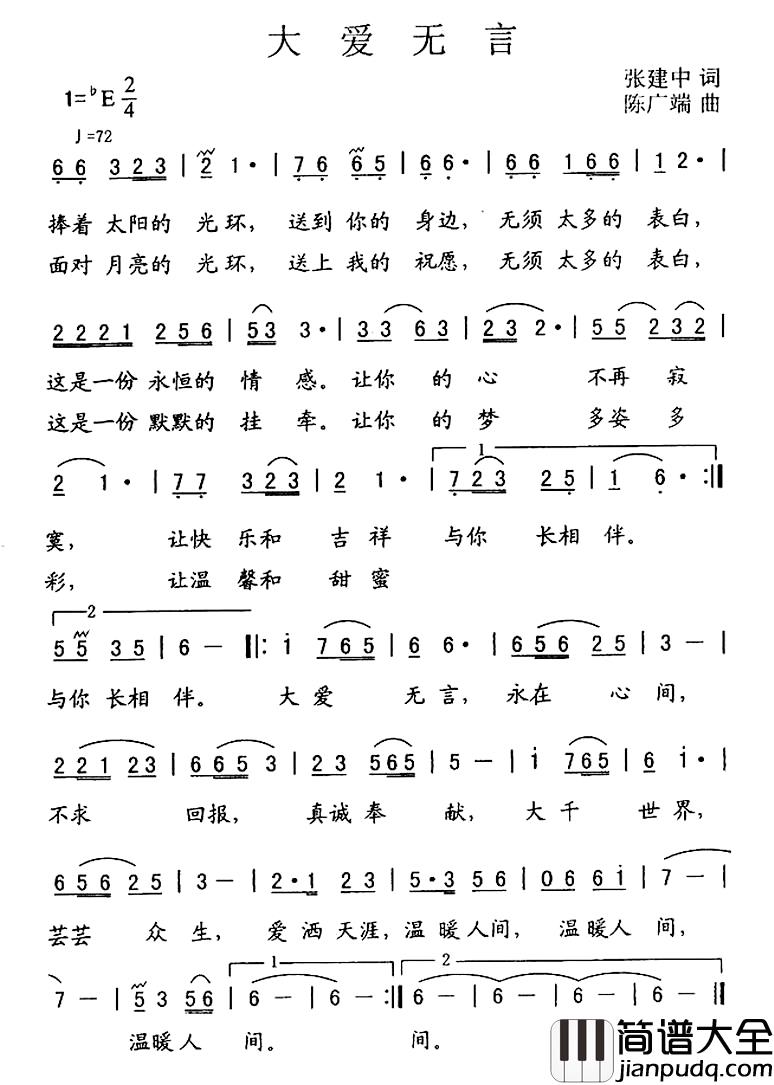 大爱无言
1=♭E 2/4
张建中 词
陈广端 曲
♩=72
6 6 3 2 3 | 2 1 · | 7 6 6 5 | 6 6 · | 6 6 1 6 6 | 1 2 · |
捧着 太阳的 光环, 送到 你的 身边, 无须 太多的 表白,
面对 月亮的 光环, 送上 我的 祝愿, 无须 太多的 表白,
2 2 2 1 2 5 6 | 5 3 3 · | 3 3 6 3 | 2 3 2 · | 5 5 2 3 2 |
这是一份 永恒的 情 感。让你 的 心 不再 寂
这是一份 默默的 挂 牵。让你 的 梦 多姿 多
2 1 · | 7 7 3 2 3 | 2 1 · | 1 7 2 3 2 5 | 1 6 · :||
寞, 让快 乐和 吉祥 与你 长相 伴。
彩, 让温 馨和 甜蜜
2
5 5 3 5 | 6 — ||: i 7 6 5 | 6 6 · | 6 5 6 2 5 | 3 — |
与你 长相 伴。 大爱 无言, 永在 心间,
2 2 1 2 3 | 6 6 5 3 | 2 3 5 6 5 | 5 — | i 7 6 5 | 6 i · |
不求 回报, 真诚奉 献, 大千 世界,
6 5 6 2 5 | 3 — | 2 · 1 2 3 | 5 · 3 5 6 | 0 6 6 i | 7 — |
芸芸 众生, 爱洒天涯, 温暖人间, 温暖人间,
7 — | 5 3 5 6 | 1 6 — | 6 — :|| 2 6 — | 6 — | 6 — | 6 — ||
温暖人 间。 间。
简谱大全
jianpudq.com